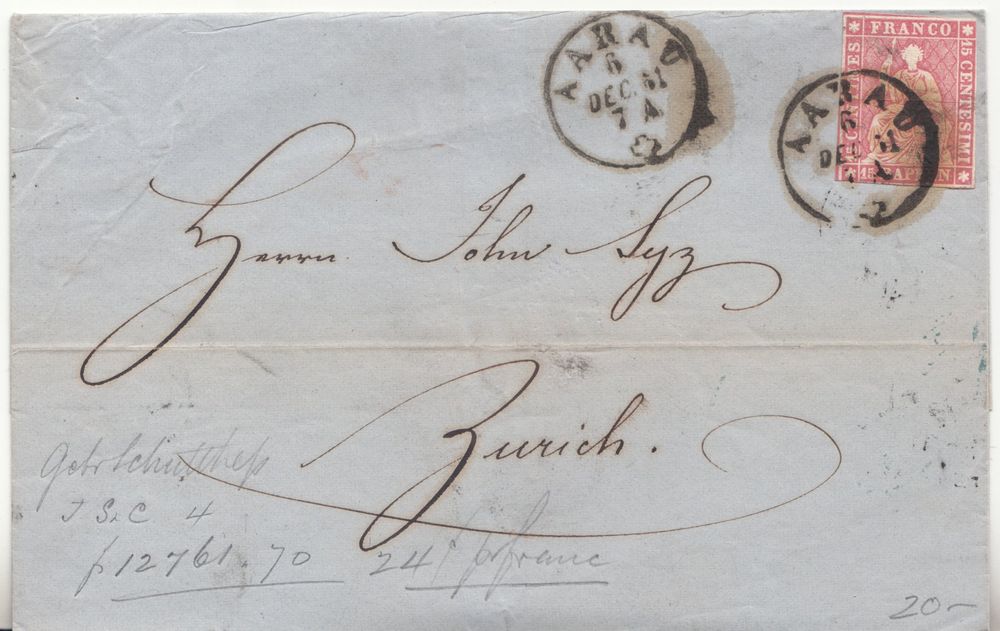 AARAU
6
DEC. 61
7 A
FRANCO
15 CENTESIMI
15 RAPPEN
CENTIMES
AARAU
6
DEC 61
Herrn John Syz
Zurich.
Gebr Schulthess
J S & C 4
f 12761.70 24 f franc
20-